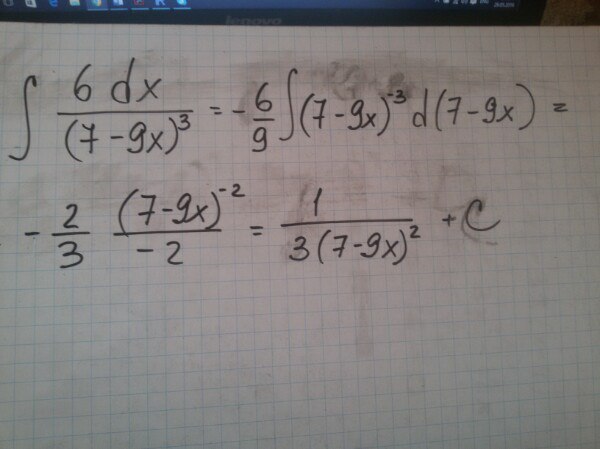 lenovo
∫ 6 dx / (7 - 9x)³ = - 6/9 ∫ (7 - 9x)⁻³ d(7 - 9x) =
- 2/3 (7 - 9x)⁻² / -2 = 1 / 3(7 - 9x)² + C